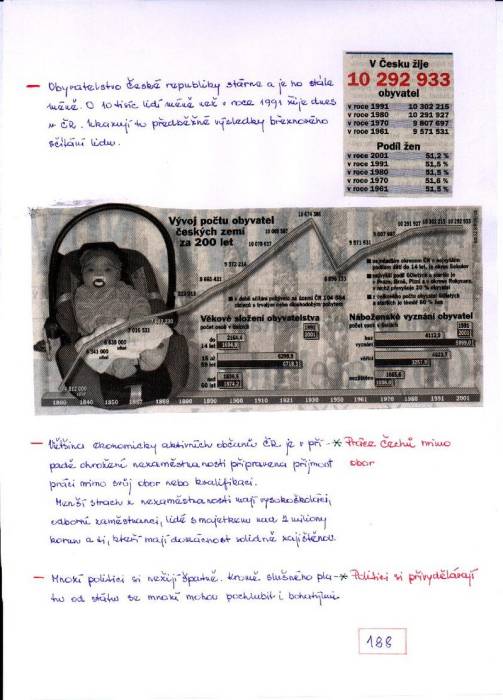 — Obyvatelstvo České republiky stárne a je ho stále
méně. O 10 tisíc lidí méně než v roce 1991 žije dnes
v ČR. Ukazují to předběžné výsledky březnového
sčítání lidu.
V Česku žije
10 292 933
obyvatel
v roce 1991 10 302 215
v roce 1980 10 291 927
v roce 1970 9 807 697
v roce 1961 9 571 531
Podíl žen
v roce 2001 51,2 %
v roce 1991 51,5 %
v roce 1980 51,5 %
v roce 1970 51,6 %
v roce 1961 51,5 %
Vývoj počtu obyvatel
českých zemí
za 200 let
10 674 386
10 009 587
10 078 637
9 372 214
8 665 421
7 016 531
9 571 531
9 807 697
10 291 927
10 302 215
10 292 933
Věkové složení obyvatelstva
počet osob v tisících
1991
2001
do
14 let
15 až
59 let
60 let
Náboženské vyznání obyvatel
počet osob v tisících
1991
2001
bez
vyznání
věřící
nezjištěno
1800 1840 1850 1857 1869 1880 1890 1900 1910 1921 1930 1950 1961 1970 1980 1991 2001
— Většina ekonomicky aktivních občanů ČR je v pří- * Práce Čechů mimo
padě ohrožení nezaměstnaností připravena přijmout obor
práci mimo svůj obor nebo kvalifikaci.
Menší strach z nezaměstnanosti mají vysokoškoláci,
odborní zaměstnanci, lidé s majetkem nad 2 miliony
korun a ti, kteří mají domácnost solidně zajištěnou.
— Mnozí politici si nežijí špatně. Kromě slušného pla- * Politici si přivydělávají
tu od státu se mnozí mohou pochlubit i bohatými
188